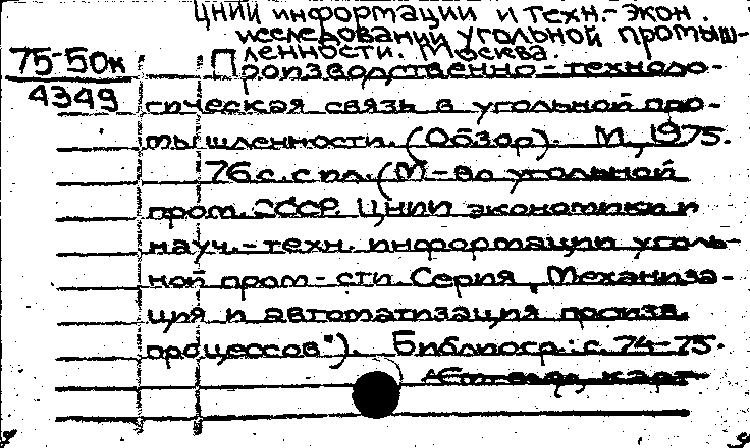 ЦНИИ информации и техн.-экон.
исследований угольной промыш-
ленности. Москва.
75-50к
4349
Производственно-техноло-
гическая связь в угольной про-
мышленности. (Обзор). М., 1975.
76 с. с ил. (М-во угольной
пром. СССР. ЦНИИ экономики и
науч.-техн. информации уголь-
ной пром-сти. Серия „Механиза-
ция и автоматизация произв.
процессов"). Библиогр.: с. 74-75.
карт